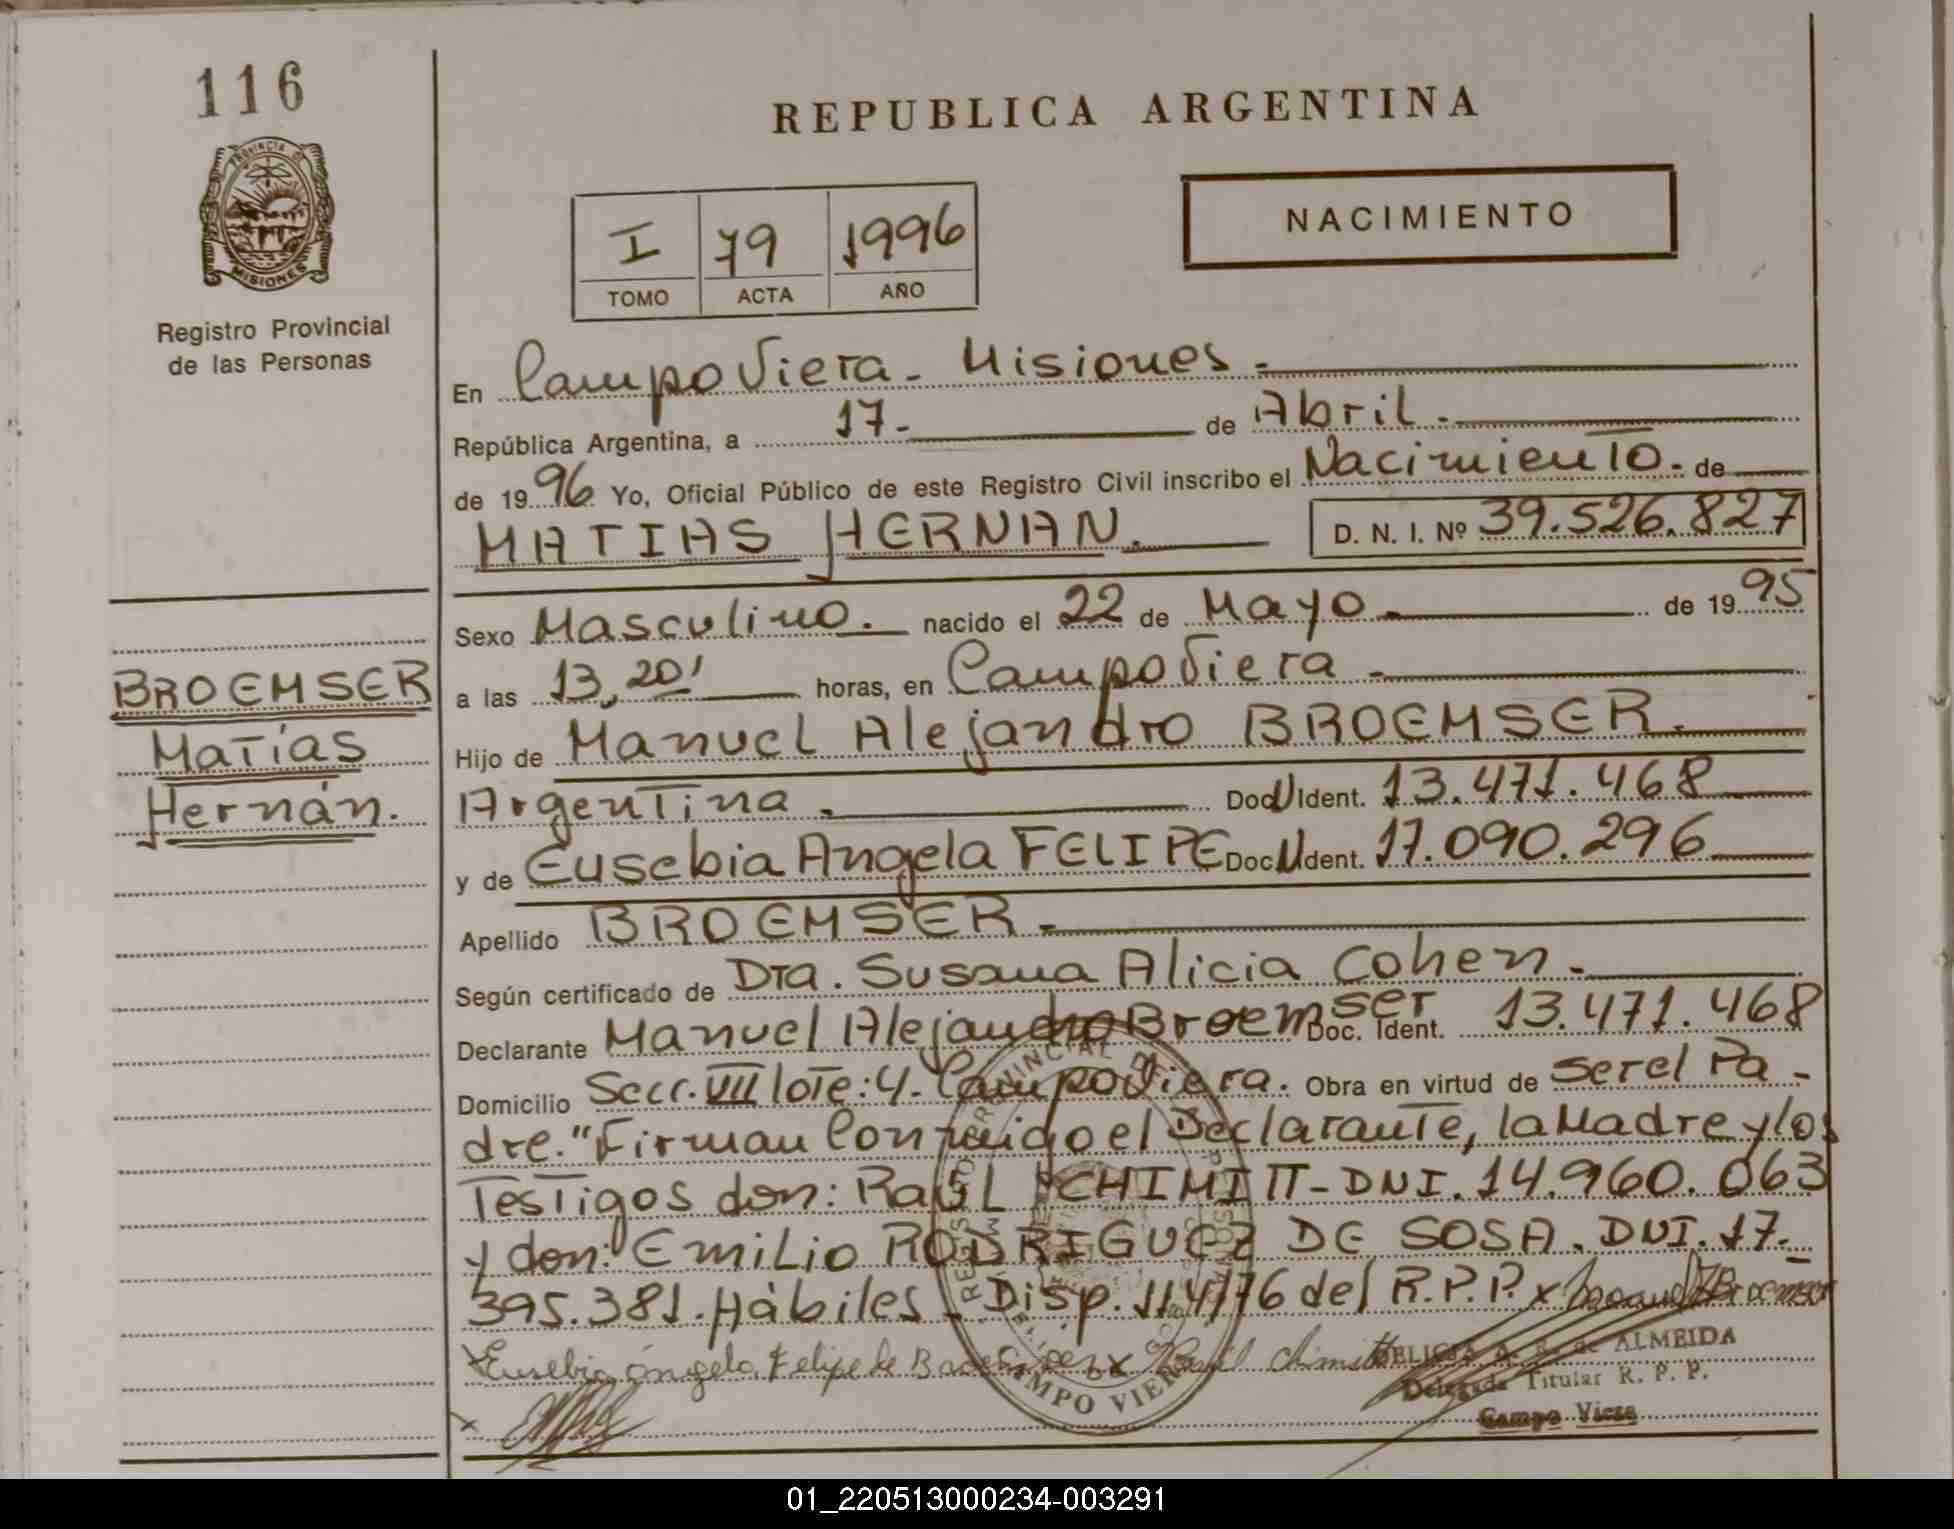 116
PROVINCIA DE
MISIONES
Registro Provincial
de las Personas
BROEMSER
Matías
Hernán.
REPUBLICA ARGENTINA
I 79 1996
TOMO ACTA AÑO
NACIMIENTO
En Campo Viera - Misiones -
República Argentina, a 17.- de Abril.-
de 1996 Yo, Oficial Público de este Registro Civil inscribo el Nacimiento.- de
MATIAS HERNAN. D. N. I. Nº 39.526.827
Sexo Masculino. nacido el 22 de Mayo - de 1995
a las 13,20' horas, en Campo Viera -
Hijo de Manuel Alejandro BROEMSER.-
Argentina. Doc U Ident. 13.471.468
y de Eusebia Angela FELIPE Doc U Ident. 17.090.296
Apellido BROEMSER.-
Según certificado de Dra. Susana Alicia Cohen.-
Declarante Manuel Alejandro Broemser Doc. Ident. 13.471.468
Domicilio Secc. VII lote: 4. Campo Viera. Obra en virtud de ser el Pa-
dre." Firman Conmigo el Declarante, la Madre y los
Testigos don: Raúl CHIMITT - DNI. 14.960.063
y don: Emilio RODRIGUEZ DE SOSA. DNI. 17.-
395.381. Hábiles - Disp. 114/76 del R.P.P. x Manuel A Broemser
x Eusebia Angela Felipe de Broemser x Raúl Chimitt
ALMEIDA
Delegada Titular R. P. P.
Campo Viera
x
CAMPO VIERA
01_220513000234-003291